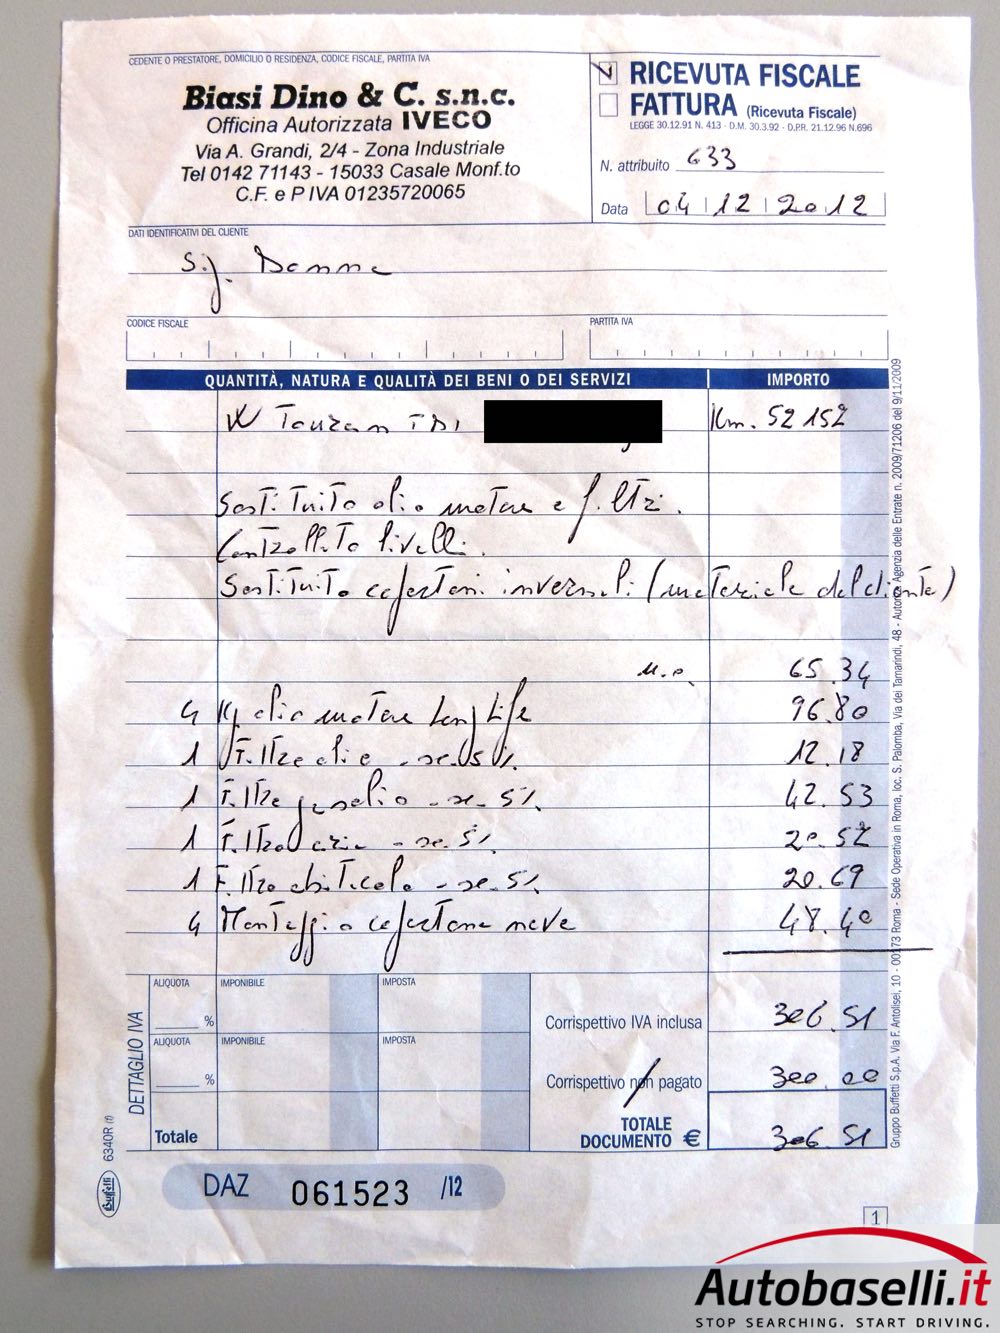 CEDENTE O PRESTATORE, DOMICILIO O RESIDENZA, CODICE FISCALE, PARTITA IVA
Biasi Dino & C. s.n.c.
Officina Autorizzata IVECO
Via A. Grandi, 2/4 - Zona Industriale
Tel 0142 71143 - 15033 Casale Monf.to
C.F. e P IVA 01235720065
RICEVUTA FISCALE
FATTURA (Ricevuta Fiscale)
LEGGE 30.12.91 N. 413 - D.M. 30.3.92 - D.P.R. 21.12.96 N.696
N. attribuito 633
Data 04 12 2012
DATI IDENTIFICATIVI DEL CLIENTE
Sig.
CODICE FISCALE
PARTITA IVA
QUANTITÀ, NATURA E QUALITÀ DEI BENI O DEI SERVIZI IMPORTO
VW Touran TDI Km. 52152
Sostituito olio motore e filtri.
Controllato livelli.
Sostituito copertoni invernali (materiale del cliente)
m.o. 65.34
4 Kg olio motore Long Life 96.80
1 Filtro olio - sc. 5% 12.18
1 Filtro gasolio - sc. 5% 42.53
1 Filtro aria - sc. 5% 20.52
1 Filtro abitacolo - sc. 5% 20.69
4 Montaggio copertone neve 48.40
DETTAGLIO IVA
ALIQUOTA IMPONIBILE IMPOSTA
%
Corrispettivo IVA inclusa 306.51
ALIQUOTA IMPONIBILE IMPOSTA
%
Corrispettivo non pagato 300.00
Totale
TOTALE
DOCUMENTO € 306.51
Buffetti 6340R (f)
DAZ 061523 /12
1
Gruppo Buffetti S.p.A. Via F. Antolisei, 10 - 00173 Roma - Sede Operativa in Roma, loc. S. Palomba, Via dei Tamarindi, 48 - Autorizz. Agenzia delle Entrate n. 2009/71206 del 9/11/2009
Autobaselli.it
STOP SEARCHING. START DRIVING.